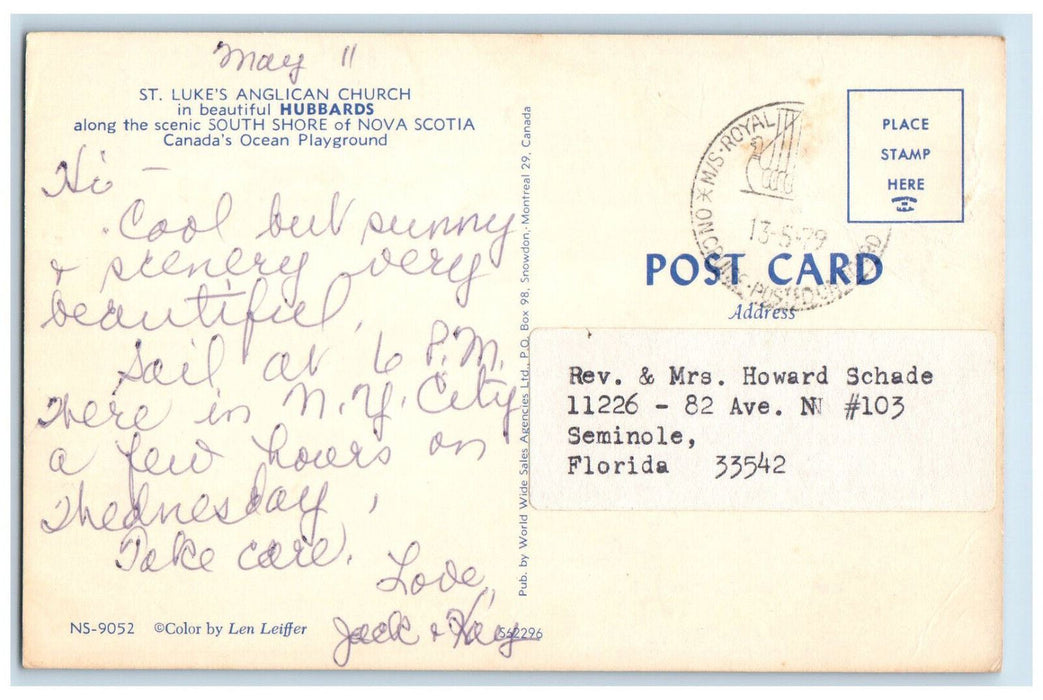 May 11
ST. LUKE'S ANGLICAN CHURCH
in beautiful HUBBARDS
along the scenic SOUTH SHORE of NOVA SCOTIA
Canada's Ocean Playground
Hi -
Cool but sunny
& scenery very
beautiful,
Sail at 6 P.M.
There in N.Y. City
a few hours on
Wednesday,
Take care.
Love,
Jack & Kay
NS-9052 ©Color by Len Leiffer
S62296
Pub. by World Wide Sales Agencies Ltd., P.O. Box 98, Snowdon, Montreal 29, Canada
M/S ROYAL
13-5-79
POSTED
PLACE
STAMP
HERE
POST CARD
Address
Rev. & Mrs. Howard Schade
11226 - 82 Ave. N #103
Seminole,
Florida 33542